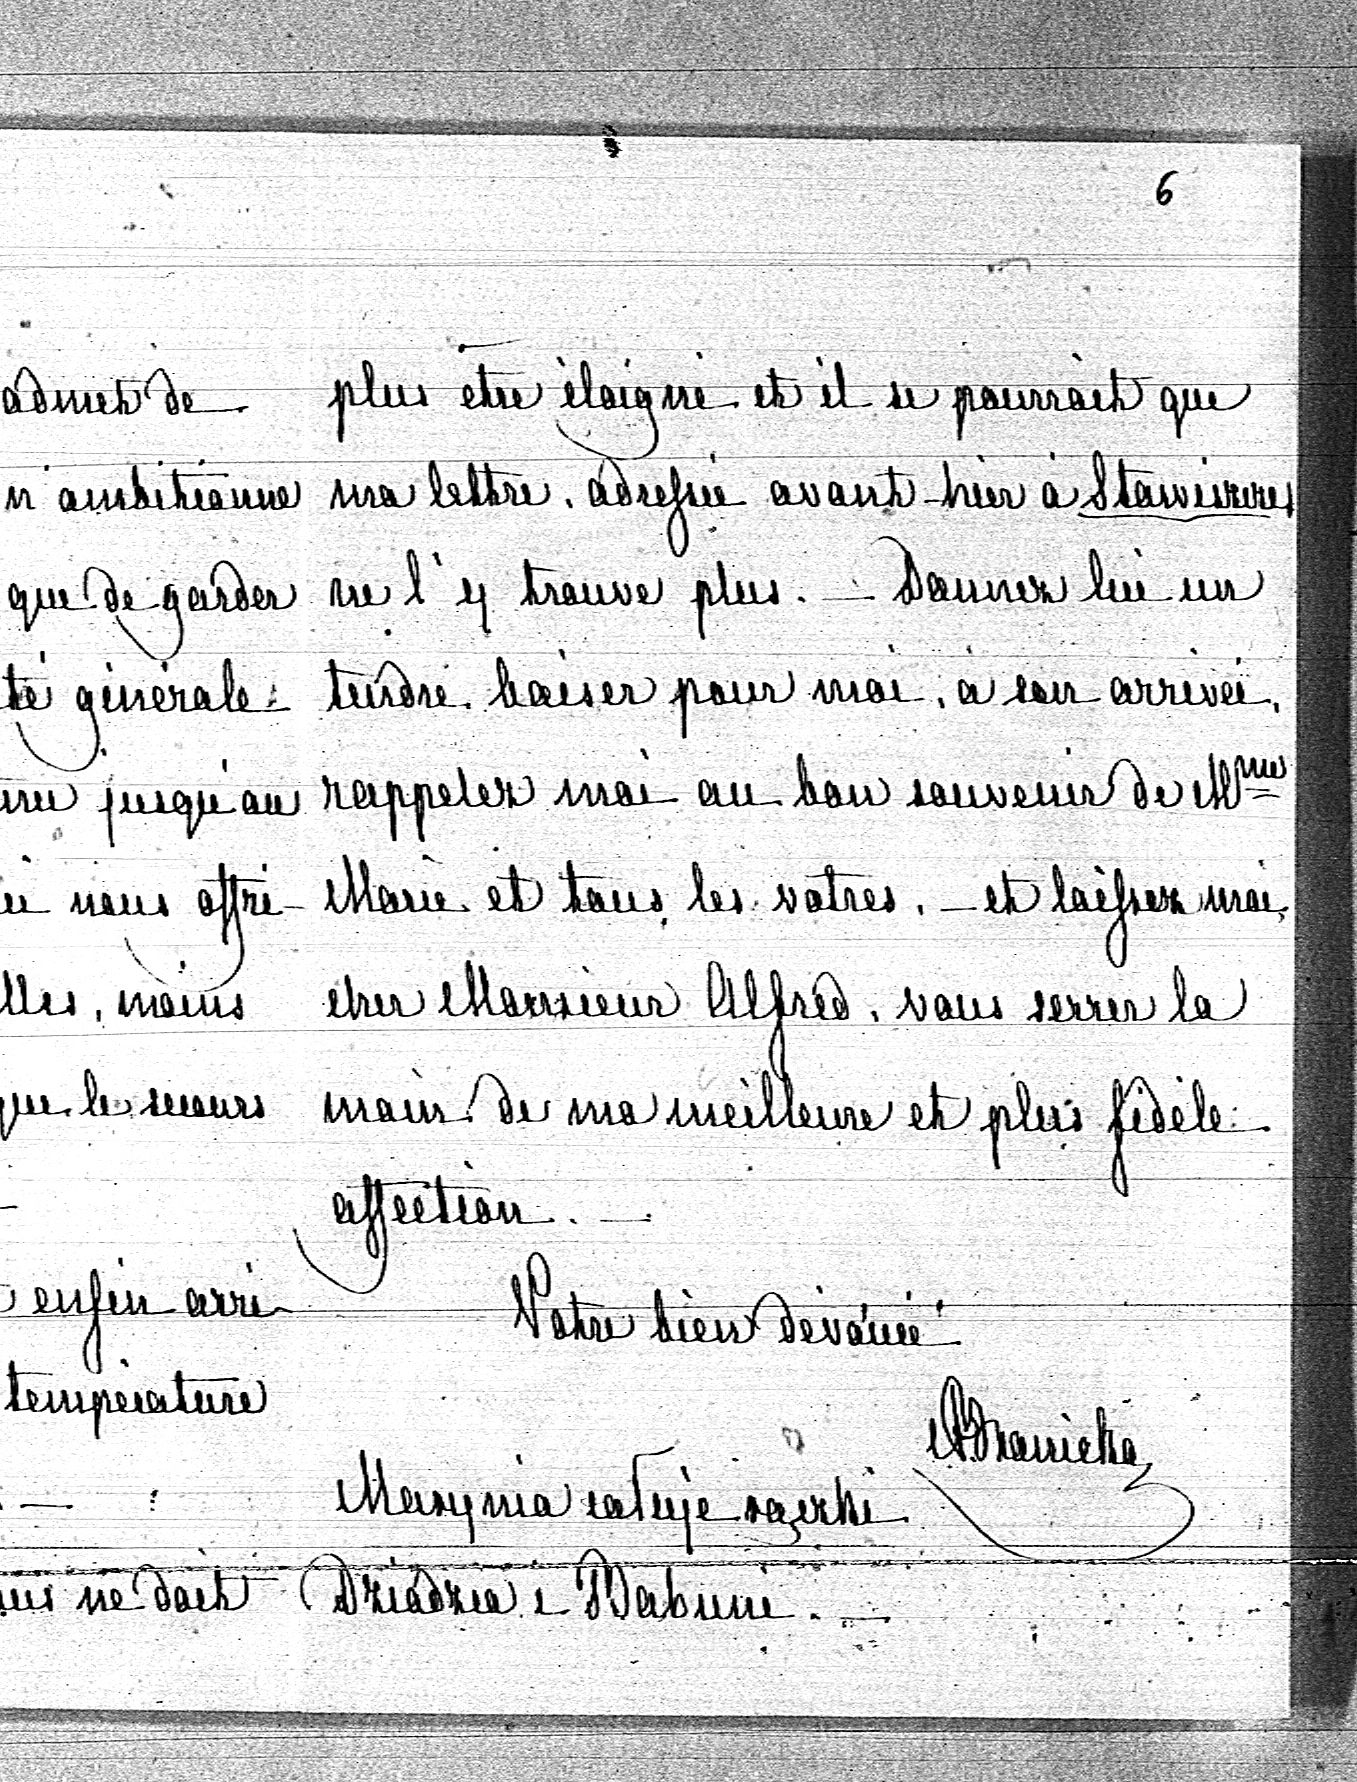 6
admet de
n'ambitionne
que de garder
té générale
jusqu'au
nous offri-
lles, moins
que le secours
enfin arri-
température
ne doit
plus être éloigné et il se pourrait que
ma lettre, adressée avant-hier à Stawiszcze,
ne l'y trouve plus. — Donnez lui un
tendre baiser pour moi, à son arrivée,
rappelez moi au bon souvenir de Mme
Marie et tous les votres, — et laissez moi,
cher Monsieur Alfred, vous serrer la
main de ma meilleure et plus fidèle
affection. —
Votre bien dévouée
Branicka
Marynia całuje rączki
Dziadzia i Babuni. —